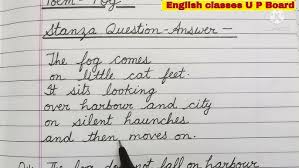 English classes U P Board
Poem - Fog
Stanza Question-Answer—
The fog comes
on little cat feet.
It sits looking
over harbour and city
on silent haunches
and then moves on.
The fog does not fall on harbour